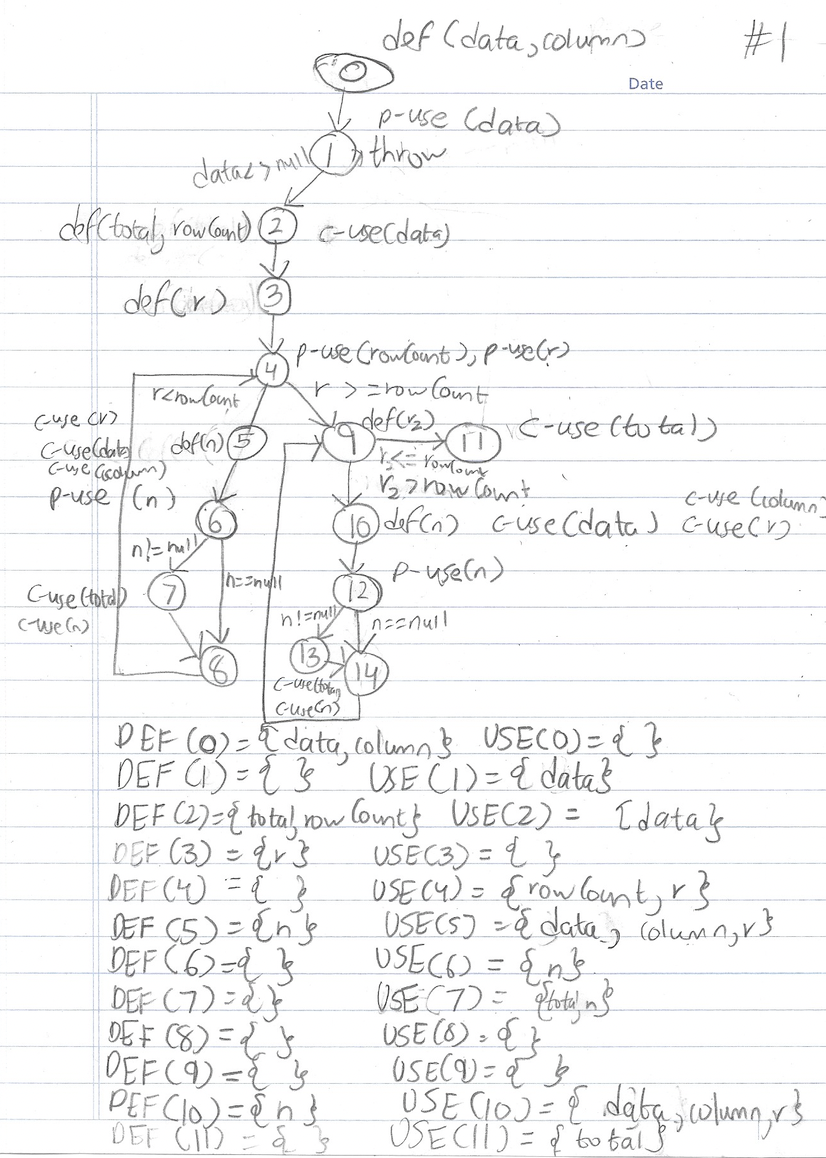 def (data, column) #1
0
Date
p-use (data)
data<>null 1 throw
def(total, rowCount) 2 c-use(data)
def(r) 3
p-use(rowCount), p-use(r)
4
r<rowCount r >= rowCount
c-use(r) def(r2)
c-use(data) def(n) 5 9 11 c-use(total)
c-use(column) r2<=rowCount
p-use (n) r2>rowCount c-use(column)
6 10 def(n) c-use(data) c-use(r)
n!=null p-use(n)
7 n==null 12
c-use(total) n!=null n==null
c-use(n) 13
8 14
c-use(total)
c-use(n)
DEF (0)={data, column} USE(0)={ }
DEF (1)={ } USE(1)={data}
DEF (2)={total, rowCount} USE(2) = {data}
DEF (3) = {r} USE(3) = { }
DEF (4) = { } USE(4) = {rowCount, r}
DEF (5) = {n} USE(5) = {data, column, r}
DEF (6)={ } USE(6) = {n}
DEF (7)={} USE(7) = {total, n}
DEF (8)={ } USE(8) = { }
DEF (9)={ } USE(9)={ }
DEF (10)={n} USE(10)={data, column, r}
DEF (11) = { } USE(11) = {total}